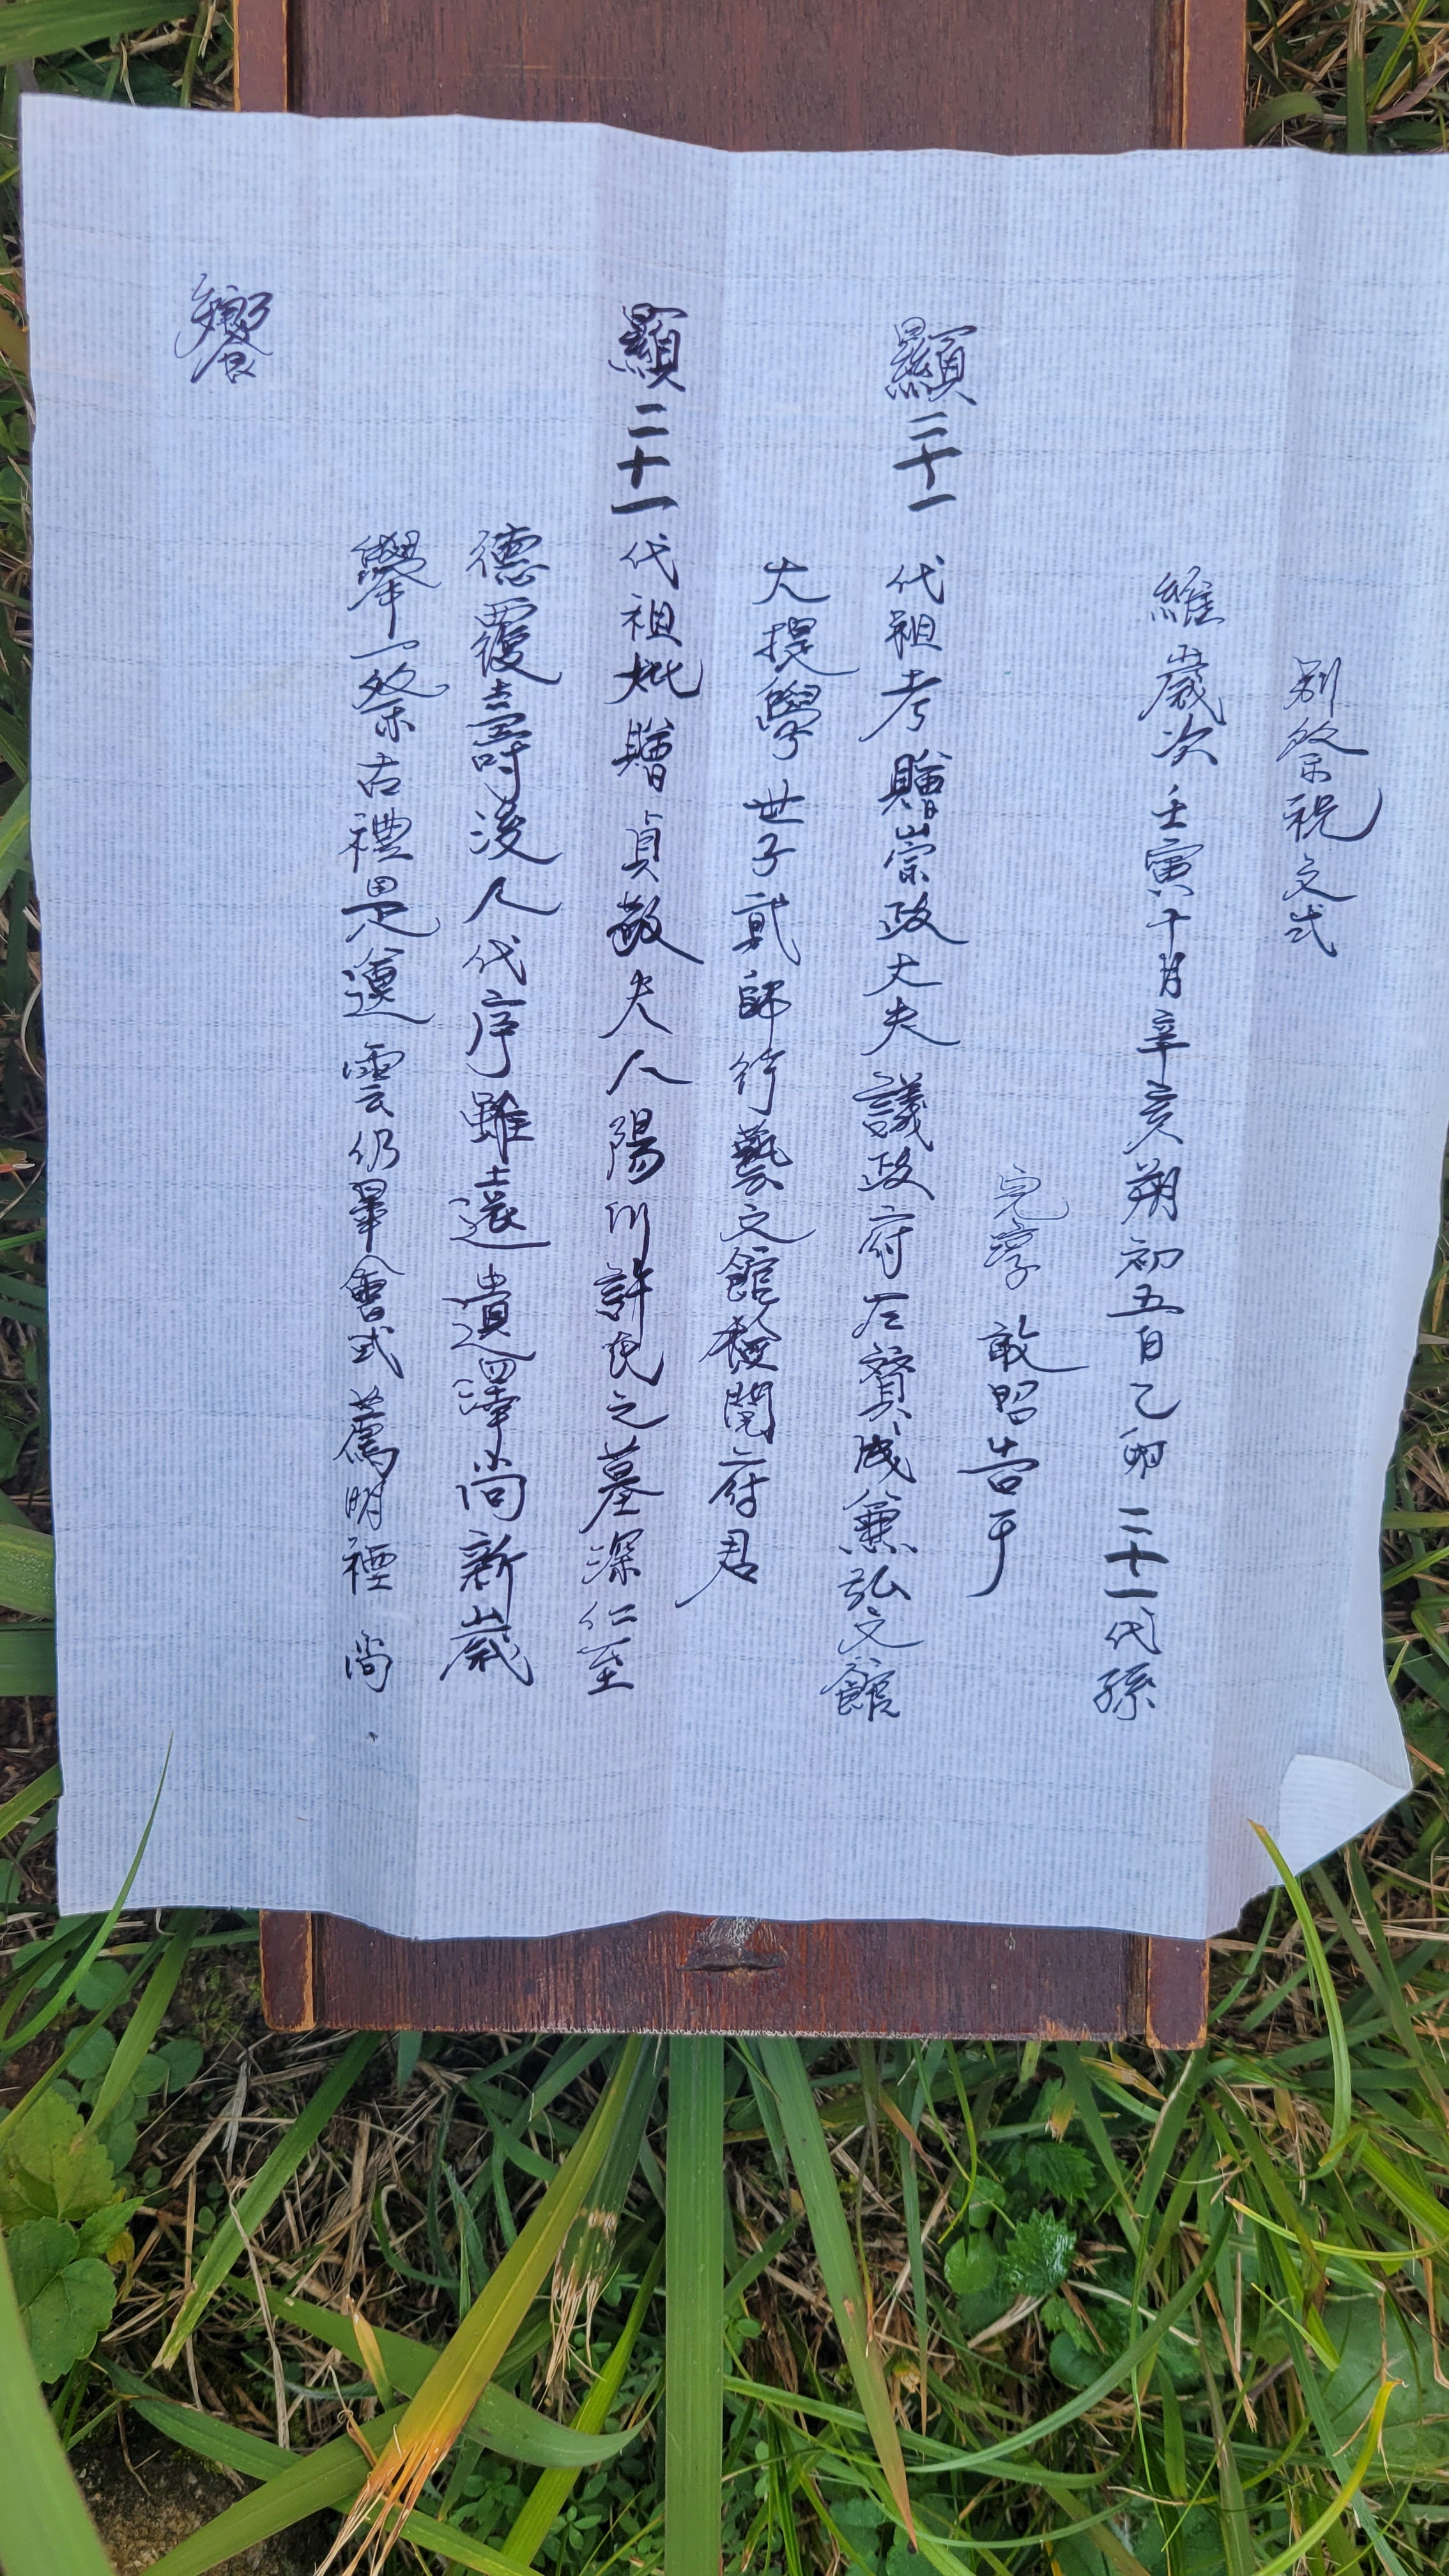 別祭祝文式
維歲次壬寅十月辛亥朔初五日乙卯二十一代孫
完淳 敢昭告于
顯二十一代祖考贈崇政大夫議政府左贊成兼弘文館
大提學世子貳師行藝文館檢閱府君
顯二十一代祖妣贈貞敬夫人陽川許氏之墓深仁至
德覆燾後人代序雖遠遺澤尚新歲
擧一祭古禮是遵雲仍畢會式薦明禋 尚
饗